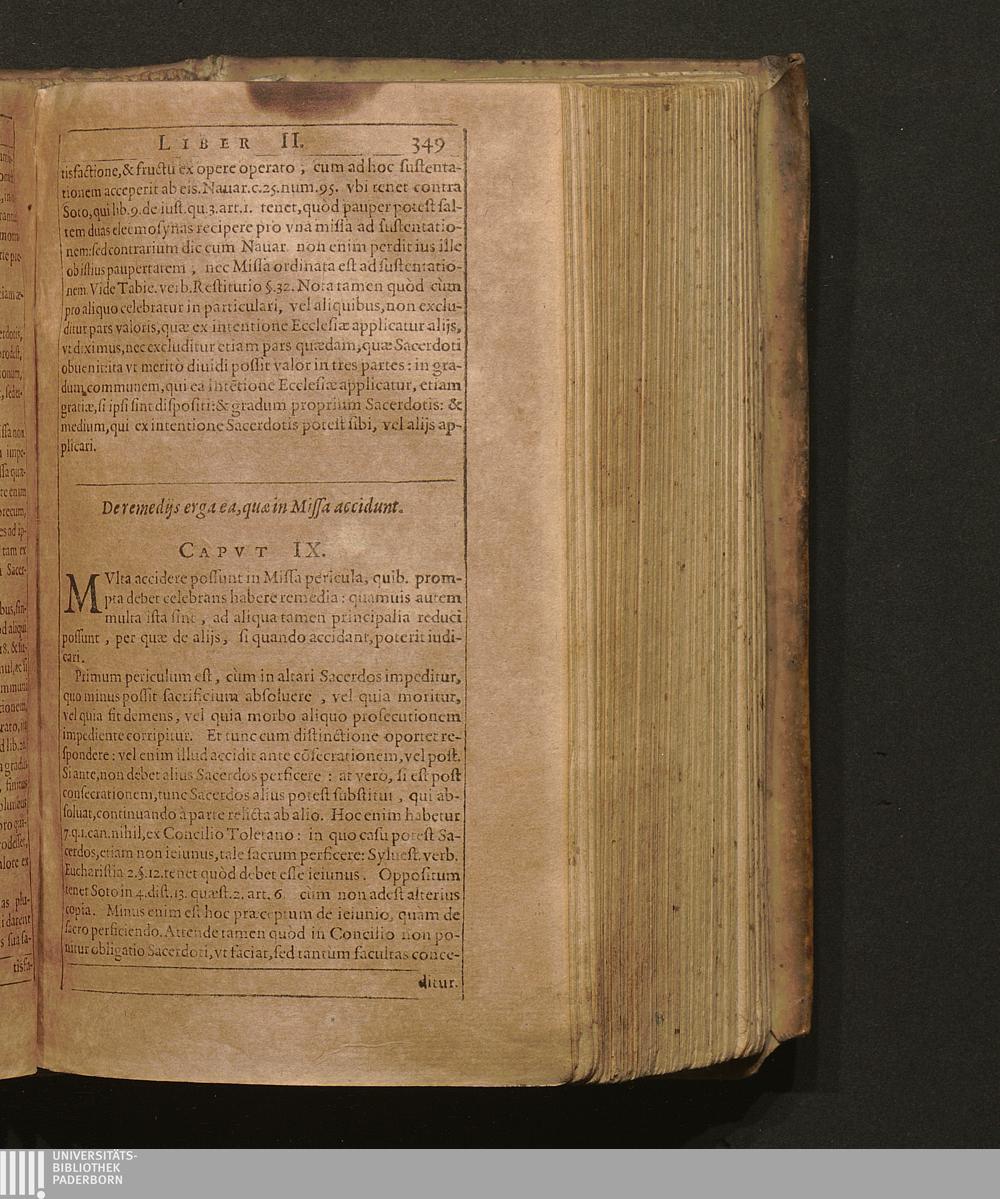 LIBER II. 349
tisfactione, & fructu ex opere operato, cum ad hoc sustenta-
tionem acceperit ab eis. Nauar. c. 25. num. 95. vbi tenet contra
Soto, qui lib. 9. de iust. qu. 3. art. 1. tenet, quòd pauper potest sal-
tem duas eleemosynas recipere pro vna missa ad sustentatio-
nem: sed contrarium dic cum Nauar. non enim perdit ius ille
ob istius paupertatem, nec Missa ordinata est ad sustentatio-
nem. Vide Tabie. verb. Restitutio §. 32. Nota tamen quòd cùm
pro aliquo celebratur in particulari, vel aliquibus, non exclu-
ditur pars valoris, quæ ex intentione Ecclesiæ applicatur alijs,
vt diximus, nec excluditur etiam pars quædam, quæ Sacerdoti
obuenit: ita vt meritò diuidi possit valor in tres partes: in gra-
dum communem, qui ea intētione Ecclesiæ applicatur, etiam
gratiæ, si ipsi sint dispositi: & gradum proprium Sacerdotis: &
medium, qui ex intentione Sacerdotis potest sibi, vel alijs ap-
plicari.
De remedijs erga ea, quæ in Missa accidunt.
CAPVT IX.
MVlta accidere possunt in Missa pericula, quib. prom-
pta debet celebrans habere remedia: quamuis autem
multa ista sint, ad aliqua tamen principalia reduci
possunt, per quæ de alijs, si quando accidant, poterit iudi-
cari.
Primum periculum est, cùm in altari Sacerdos impeditur,
quo minus possit sacrificium absoluere, vel quia moritur,
vel quia fit demens, vel quia morbo aliquo prosecutionem
impediente corripitur. Et tunc cum distinctione oportet re-
spondere: vel enim illud accidit ante cōsecrationem, vel post.
Si ante, non debet alius Sacerdos perficere: at verò, si est post
consecrationem, tunc Sacerdos alius potest substitui, qui ab-
soluat, continuando à parte relicta ab alio. Hoc enim habetur
7. q. 1. can. nihil, ex Concilio Toletano: in quo casu potest Sa-
cerdos, etiam non ieiunus, tale sacrum perficere: Syluest. verb.
Eucharistia 2. §. 12. tenet quòd debet esse ieiunus. Oppositum
tenet Soto in 4. dist. 13. quæst. 2. art. 6. cùm non adest alterius
copia. Minus enim est hoc præceptum de ieiunio, quam de
sacro perficiendo. Attende tamen quòd in Concilio non po-
nitur obligatio Sacerdoti, vt faciat, sed tantum facultas conce-
ditur.
UNIVERSITÄTS-
BIBLIOTHEK
PADERBORN